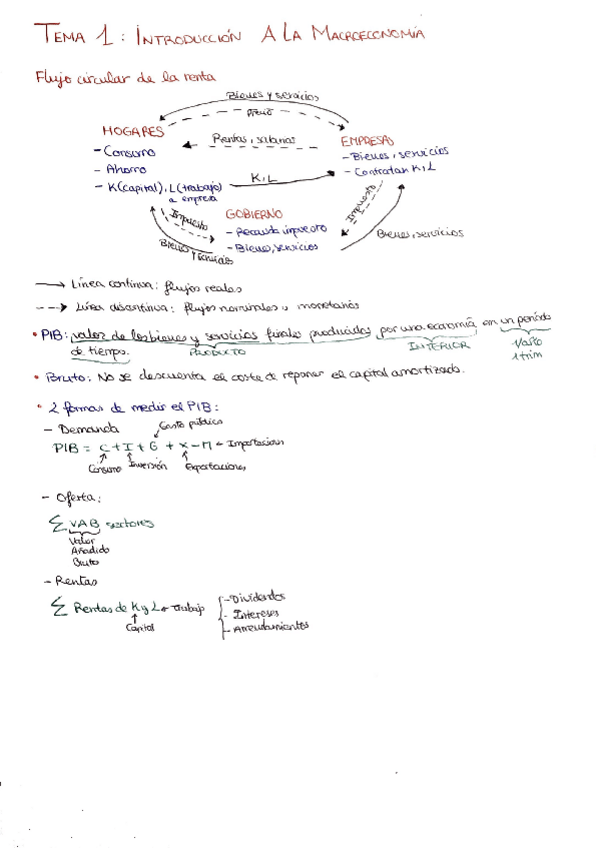 TEMA 1: INTRODUCCIÓN A LA MACROECONOMÍA
Flujo circular de la renta
Bienes y servicios
Precio
HOGARES
- Consumo
- Ahorro
- K(capital), L(trabajo)
a empresa
Rentas, salarios
K, L
EMPRESAS
- Bienes, servicios
- Contratan K, L
Impuesto
Bienes y servicios
GOBIERNO
- Recauda impuesto
- Bienes, servicios
Impuesto
Bienes, servicios
→ Línea continua: flujos reales
--→ Línea discontinua: flujos nominales o monetarios
• PIB: valor de los bienes y servicios finales producidos por una economía en un periodo
de tiempo.
PRODUCTO
INTERIOR
1 trim
• Bruto: No se descuenta el coste de reponer el capital amortizado.
• 2 formas de medir el PIB:
- Demanda
Gasto público
PIB = C + I + G + X - M ← Importacion
Consumo Inversión Exportaciones
- Oferta:
Σ VAB sectores
Valor
Añadido
Bruto
- Rentas
Σ Rentas de K y L ← trabajo
Capital
- Dividendos
- Intereses
- Arrendamientos